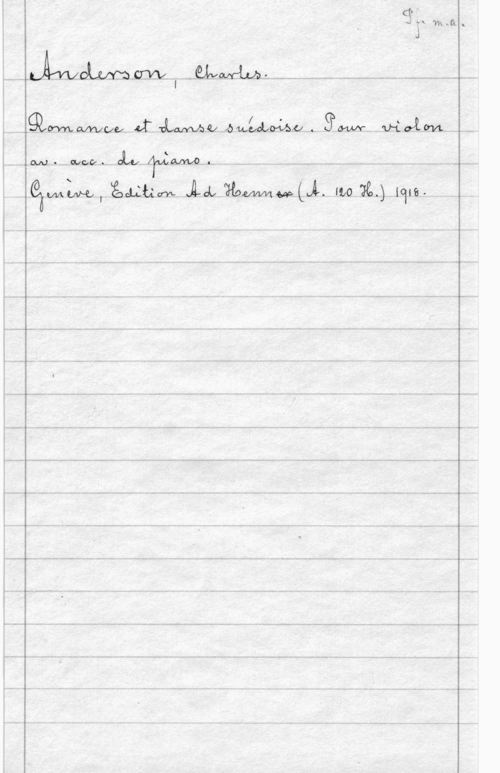 Pf. m.a.
Anderson, Charles.
Romance et danse suédoise. Pour violon
av. acc. de piano.
Genève, Edition Ad Henn (A. 120 H.) 1918.